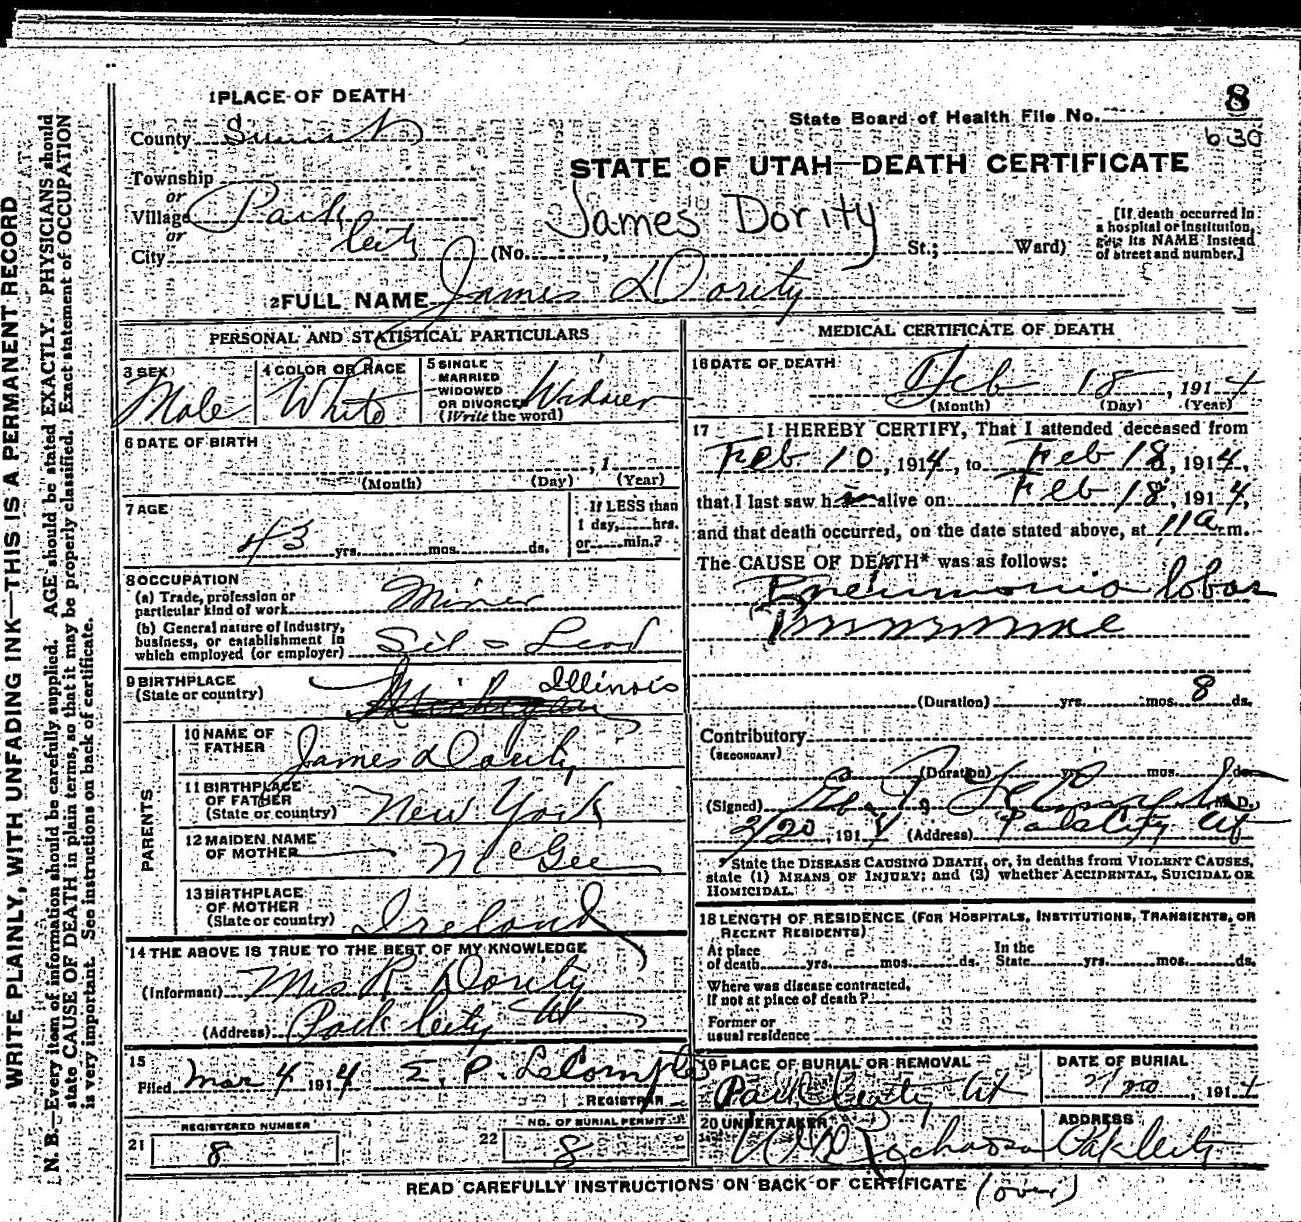 WRITE PLAINLY, WITH UNFADING INK—THIS IS A PERMANENT RECORD
N. B.—Every item of information should be carefully supplied. AGE should be stated EXACTLY. PHYSICIANS should
state CAUSE OF DEATH in plain terms, so that it may be properly classified. Exact statement of OCCUPATION
is very important. See instructions on back of certificate.
8
State Board of Health File No.
630
STATE OF UTAH—DEATH CERTIFICATE
1 PLACE OF DEATH
County Summit
Township
or
Village Park
or
City City (No. , James Dority St.; Ward)
[If death occurred in
a hospital or institution,
give its NAME instead
of street and number.]
2 FULL NAME James Dority
PERSONAL AND STATISTICAL PARTICULARS
3 SEX
Male
4 COLOR OR RACE
White
5 SINGLE
MARRIED
WIDOWED
OR DIVORCED
(Write the word)
6 DATE OF BIRTH
, 1
(Month) (Day) (Year)
7 AGE
43 yrs. mos. ds.
If LESS than
1 day, hrs.
or min.?
8 OCCUPATION
(a) Trade, profession or
particular kind of work Miner
(b) General nature of industry,
business, or establishment in
which employed (or employer) Sil & Lead
9 BIRTHPLACE
(State or country) Michigan Illinois
PARENTS
10 NAME OF
FATHER James Dority
11 BIRTHPLACE
OF FATHER
(State or country) New York
12 MAIDEN NAME
OF MOTHER McGee
13 BIRTHPLACE
OF MOTHER
(State or country) Ireland
14 THE ABOVE IS TRUE TO THE BEST OF MY KNOWLEDGE
(Informant) Mrs R. Dority
(Address) Park City Ut
15
Filed Mar 4 1914 E. P. LeCompte
REGISTRAR
21 REGISTERED NUMBER
8
22 NO. OF BURIAL PERMIT
8
MEDICAL CERTIFICATE OF DEATH
16 DATE OF DEATH
Feb 18, 1914
(Month) (Day) (Year)
17 I HEREBY CERTIFY, That I attended deceased from
Feb 10, 1914, to Feb 18, 1914,
that I last saw him alive on Feb 18, 1914,
and that death occurred, on the date stated above, at 11 a m.
The CAUSE OF DEATH* was as follows:
Pneumonia lobar
(Duration) yrs. mos. 8 ds.
Contributory
(SECONDARY)
(Duration) yrs. mos. ds.
(Signed) M. D.
2/20, 1914 (Address) Park City Ut
*State the DISEASE CAUSING DEATH, or, in deaths from VIOLENT CAUSES,
state (1) MEANS OF INJURY; and (2) whether ACCIDENTAL, SUICIDAL OR
HOMICIDAL.
18 LENGTH OF RESIDENCE (FOR HOSPITALS, INSTITUTIONS, TRANSIENTS, OR
RECENT RESIDENTS)
At place
of death yrs. mos. ds. In the
State yrs. mos. ds.
Where was disease contracted,
if not at place of death?
Former or
usual residence
19 PLACE OF BURIAL OR REMOVAL
Park City Ut
DATE OF BURIAL
2/20, 1914
20 UNDERTAKER
ADDRESS
Pk City
READ CAREFULLY INSTRUCTIONS ON BACK OF CERTIFICATE (over)